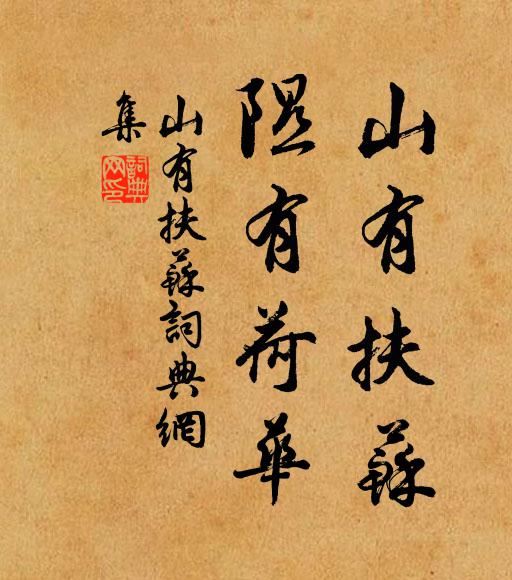 山有扶蘇
隰有荷華
山有扶蘇詞典網
集
詞典
网印